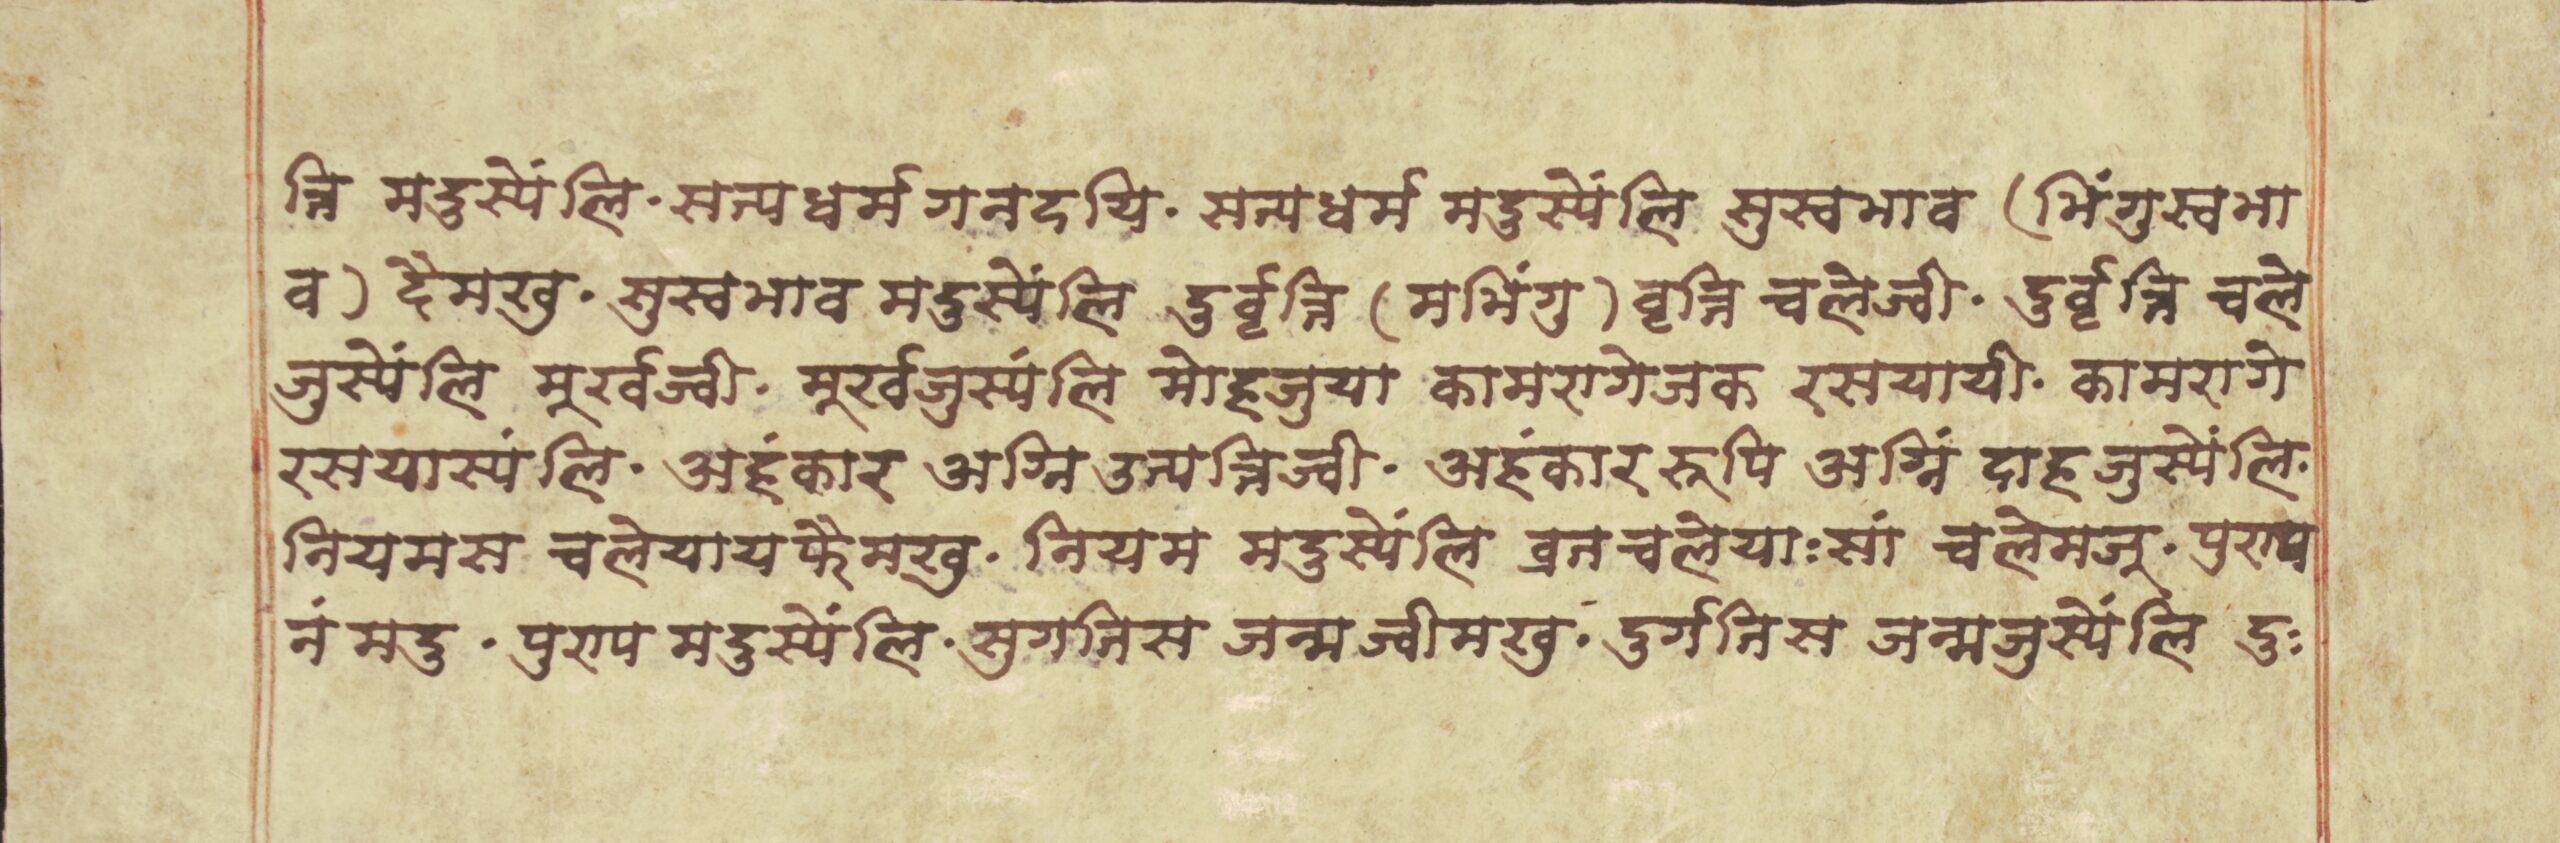 त्ति मदुस्येंलि. सत्यधर्म गनदयि. सत्यधर्म मदुस्येंलि सुस्वभाव (भिंगुस्वभा
व) दैमखु. सुस्वभाव मदुस्येंलि दुर्वृत्ति (मभिंगु) वृत्ति चलेज्वी. दुर्वृत्ति चले
जुस्येंलि मूर्खज्वी. मूर्खजुस्यंलि मोहजुया कामरागेजक रसयायी. कामरागे
रसयास्यंलि. अहंकार अग्नि उत्पत्तिज्वी. अहंकाररूपि अग्निं दाहजुस्येंलि.
नियमस चलेयायफैमखु. नियम मदुस्येंलि व्रतचलेयाःसां चलेमजू. पुण्य
नं मदु. पुण्य मदुस्येंलि. सुगतिस जन्मज्वीमखु. दुर्गतिस जन्मजुस्येंलि दुः